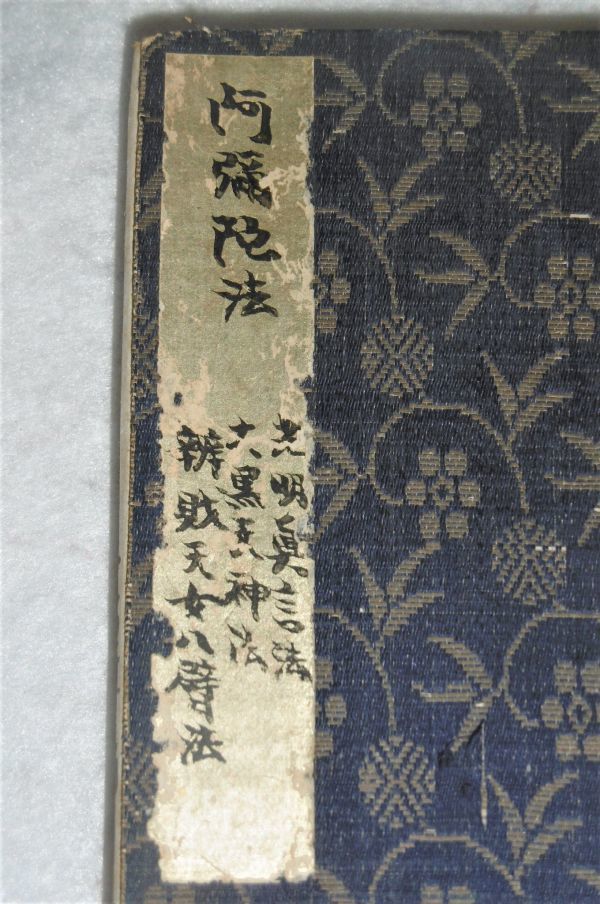 阿彌陀法
光明眞言法
大黒天神法
辨財天女八臂法